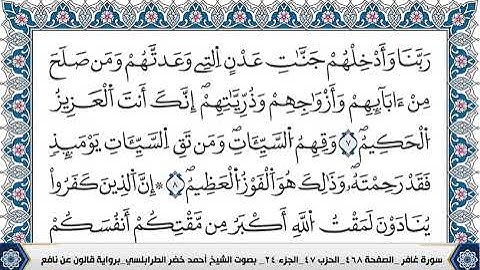 رَبَّنَا وَأَدْخِلْهُمْ جَنَّٰتِ عَدْنٍ اِلتِے وَعَدتَّهُمْ وَمَن صَلَحَ
مِنْ ءَابَآئِهِمْ وَأَزْوَٰجِهِمْ وَذُرِّيَّٰتِهِمْۖ إِنَّكَ أَنتَ اَلْعَزِيزُ
اُلْحَكِيمُۖ ٧ وَقِهِمُ اُلسَّيِّـَٔاتِۖ وَمَن تَقِ اِلسَّيِّـَٔاتِ يَوْمَئِذٍ
فَقَدْ رَحِمْتَهُۥۖ وَذَٰلِكَ هُوَ اَلْفَوْزُ اُلْعَظِيمُۖ ٨ ۞ إِنَّ اَلذِينَ كَفَرُواْ
يُنَادَوْنَ لَمَقْتُ اُللَّهِ أَكْبَرُ مِن مَّقْتِكُمْ أَنفُسَكُمْ
سورة غافر _الصفحة ٤٦٨_الحزب ٤٧_الجزء ٢٤_ بصوت الشيخ أحمد خضر الطرابلسي_برواية قالون عن نافع